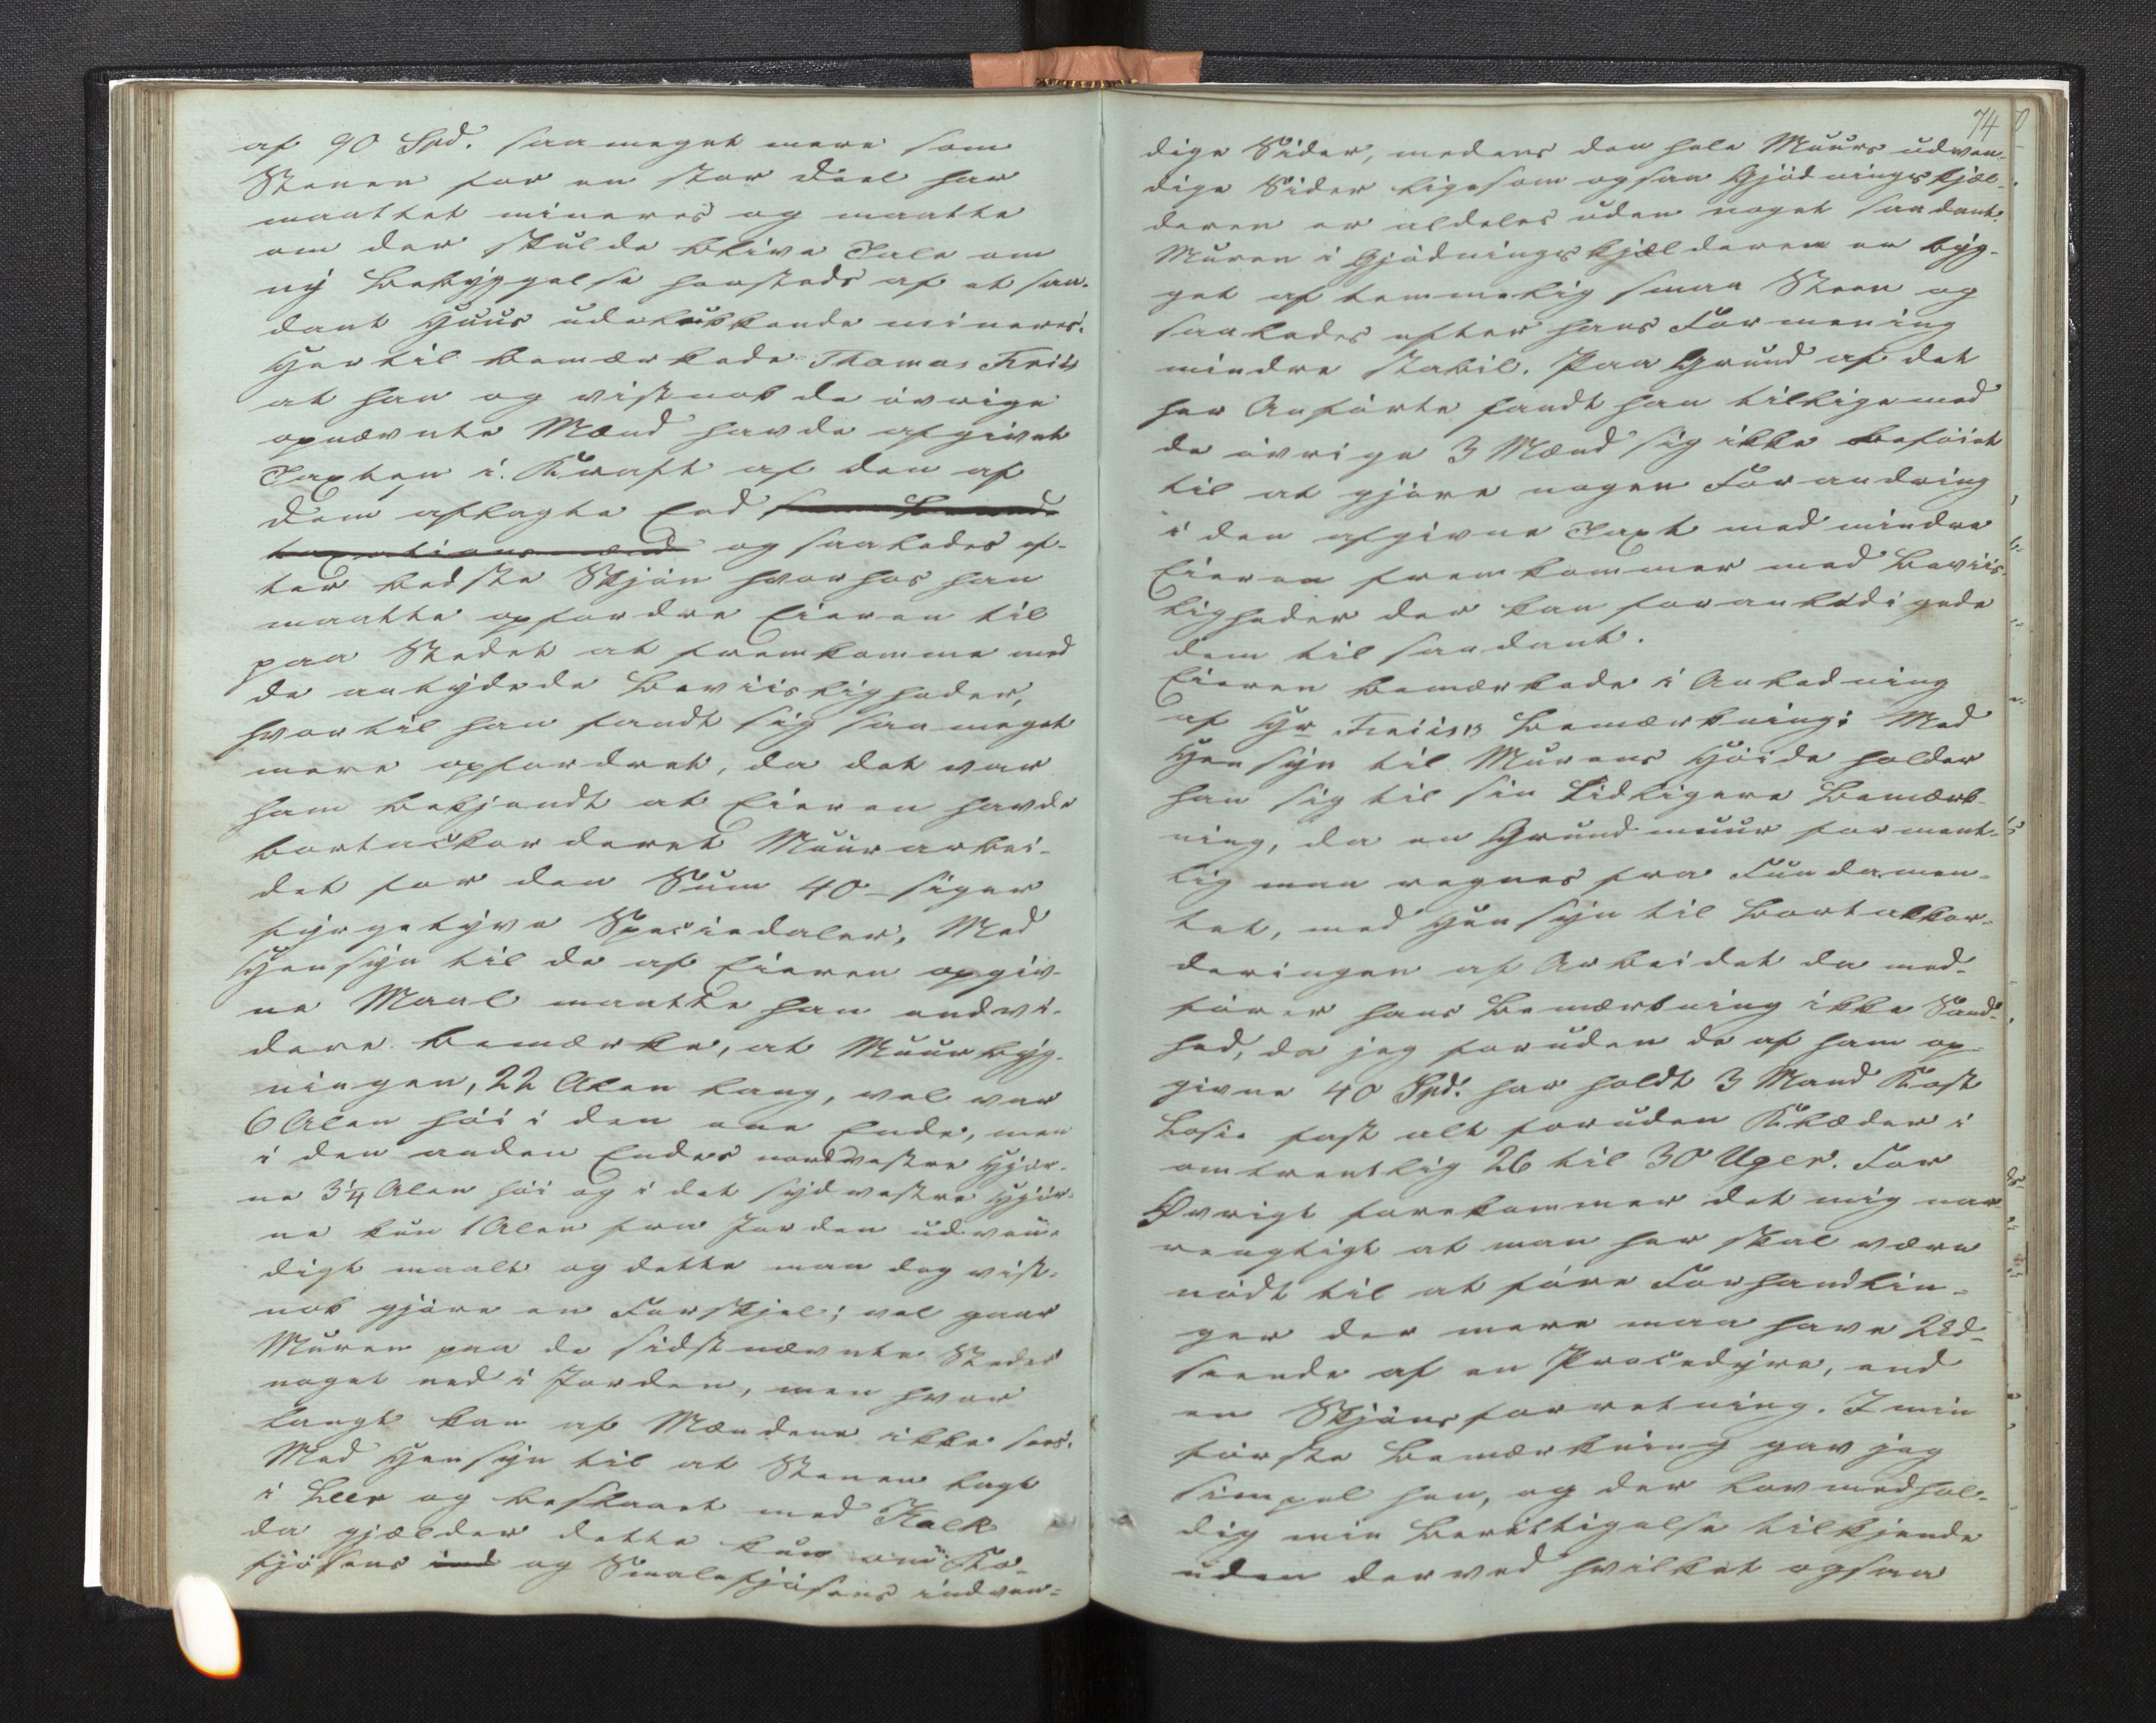 af 90 Spd. saameget mere som
Stenen for en stor Deel har
maattet mineres og maatte
om der skulde blive Tale om
ny Bebyggelse hersteds af et saa-
dant Huus udelukkende mineres.
Hertil bemærkede Thomas Friis
at han og vistnok de øvrige
opnævnte Mænd havde afgivet
Taxten i Kraft af den af
dem aflagte Eed
og saaledes ef-
ter bedste Skjøn hvorhos han
maatte opfordre Eieren til
paa Stedet at fremkomme med
de antydede Beviisligheder,
hvortil han fandt sig saameget
mere opfordret, da det var
ham bekjendt at Eieren havde
bortackorderet Muurarbei-
det for den Sum 40 siger
fyrgetyve Speciedaler, Med
Hensyn til de af Eieren opgiv-
ne Maal maatte han endvi-
dere bemærke, at Muurbyg-
ningen, 22 Alen lang, vel var
6 Alen høi i den ene Ende, men
i den anden Endes nordvestre Hjør-
ne 3 1/4 Alen høi og i det sydvestre Hjør-
ne kun 1 Alen fra Jorden udven-
digt maalt og dette maa dog vist-
nok gjøre en Forskjel; vel gaar
Muren paa de sidstnævnte Steder
noget ned i Jorden, men hvor
langt kan af Mændene ikke sees.
Med Hensyn til at Stenen lagt
i Leer og beslaaet med Kalk
da gjælder dette kun om Ko-
fjøsens ind og Smalefjøsens indven-
74
dige Sider, medens den hele Muurs udven-
dige Sider ligesom ogsaa Gjødningskjæl-
deren er aldeles uden noget saadant.
Muren i Gjødningskjælderen er byg-
get af temmelig smaa Steen og
saaledes efter hans Formening
mindre stabil. Paa Grund af det
her Anførte fandt han tilligemed
de øvrige 3 Mænd sig ikke beføiet
til at gjøre nogen Forandring
i den afgivne Taxt med mindre
Eieren fremkommer med Beviis-
ligheder der kan foranledigede
dem til saadant.
Eieren bemærkede i Anledning
af Hr Friises Bemærkning: Med
Hensyn til Murens Høide holder
han sig til sin tidligere Bemærk-
ning, da en Grundmuur forment-
lig maa regnes fra Fundamen-
tet, med Hensyn til Bortakkor-
deringen af Arbeidet da med-
fører hans Bemærkning ikke Sand-
hed, da jeg foruden de af ham op-
givne 40 Spd. har holdt 3 Mand Kost
Losie fast alt foruden Klæder i
omtrentlig 26 til 30 Uger. For
Øvrigt forekommer det mig
at man her skal være
nødt til at føre Forhandlin-
ger der mere maa have Ud-
seende af en Procedyre, end
en Skjønsforretning. I min
første Bemærkning gav jeg
simpel hen, og der lovmedhol-
dig min Berettigelse tilkjende
uden derved hvilket ogsaa